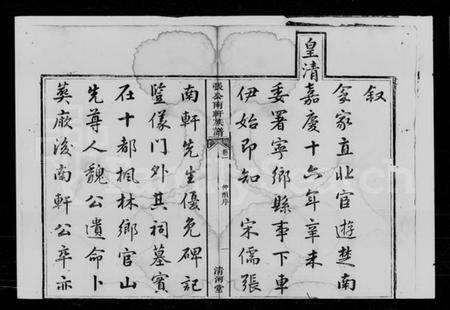 皇清
叙
余家直北官遊楚南
嘉慶十六年辛未
委署寧鄉縣事下車
伊始即知 宋儒張
張公南軒族譜
卷
仲順序
清河堂
南軒先生優免碑記
豎儀門外其祠墓實
在十都楓林鄉官山
先尊人魏公遺命卜
葬厥後南軒公卒亦